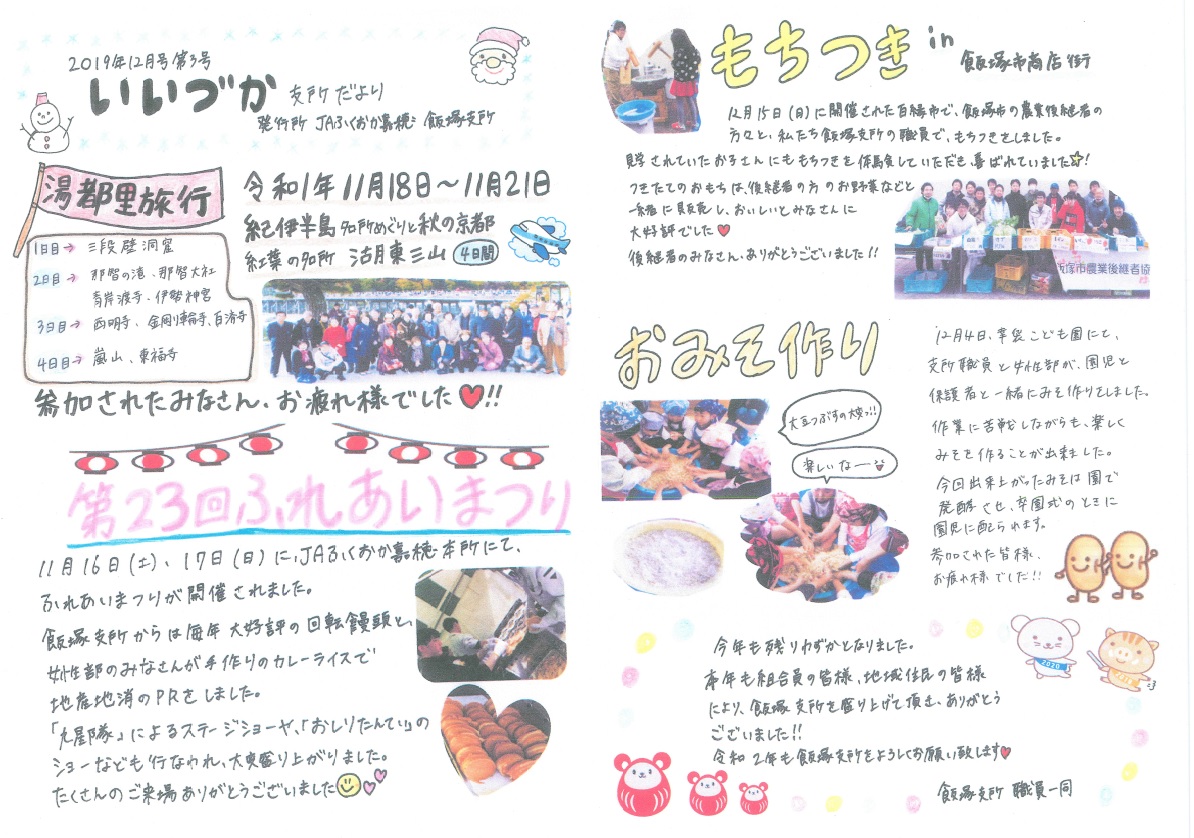 2019年12月号 第3号
いいづか 支所だより
発行所 JAふくおか嘉穂 飯塚支所
湯都里旅行
令和1年 11月18日〜11月21日
紀伊半島 名所めぐりと秋の京都
紅葉の名所 湖東三山 4日間
1日目→ 三段壁洞窟
2日目→ 那智の滝、那智大社
青岸渡寺、伊勢神宮
3日目→ 西明寺、金剛輪寺、百済寺
4日目→ 嵐山、東福寺
参加されたみなさん、お疲れ様でした♥!!
第23回ふれあいまつり
11月16日(土)、17日(日)に、JAふくおか嘉穂本所にて、
ふれあいまつりが開催されました。
飯塚支所からは毎年大好評の回転饅頭と、
女性部のみなさんが手作りのカレーライスで
地産地消のPRをしました。
によるステージショーや、「おしりたんてい」の
ショーなども行なわれ、大変盛り上がりました。
たくさんのご来場ありがとうございました
もちつき in 飯塚市商店街
12月15日(日)に開催された百縁市で、飯塚市の農業後継者の
方々と、私たち飯塚支所の職員で、もちつきをしました。
見学されていたお子さんにももちつきを体験していただき喜ばれていました☆!
つきたてのおもちは、後継者の方のお野菜などと
一緒に販売し、おいしいとみなさんに
大好評でした♥
後継者のみなさん、ありがとうございました!!
飯塚市農業後継者協
おみそ作り
12月4日、幸袋こども園にて、
支所職員と女性部が、園児と
保護者と一緒にみそ作りをしました。
作業に苦戦しながらも、楽しく
みそを作ることが出来ました。
今回出来上がったみそは園で
発酵させ、卒園式のときに
園児に配られます。
参加された皆様、
お疲れ様でした!!
大豆つぶすの大変っ!!
楽しいなー
今年も残りわずかとなりました。
本年も組合員の皆様、地域住民の皆様
により、飯塚支所を盛り上げて頂き、ありがとう
ございました!!
令和2年も飯塚支所をよろしくお願い致します♥
飯塚支所 職員一同
2020
2019